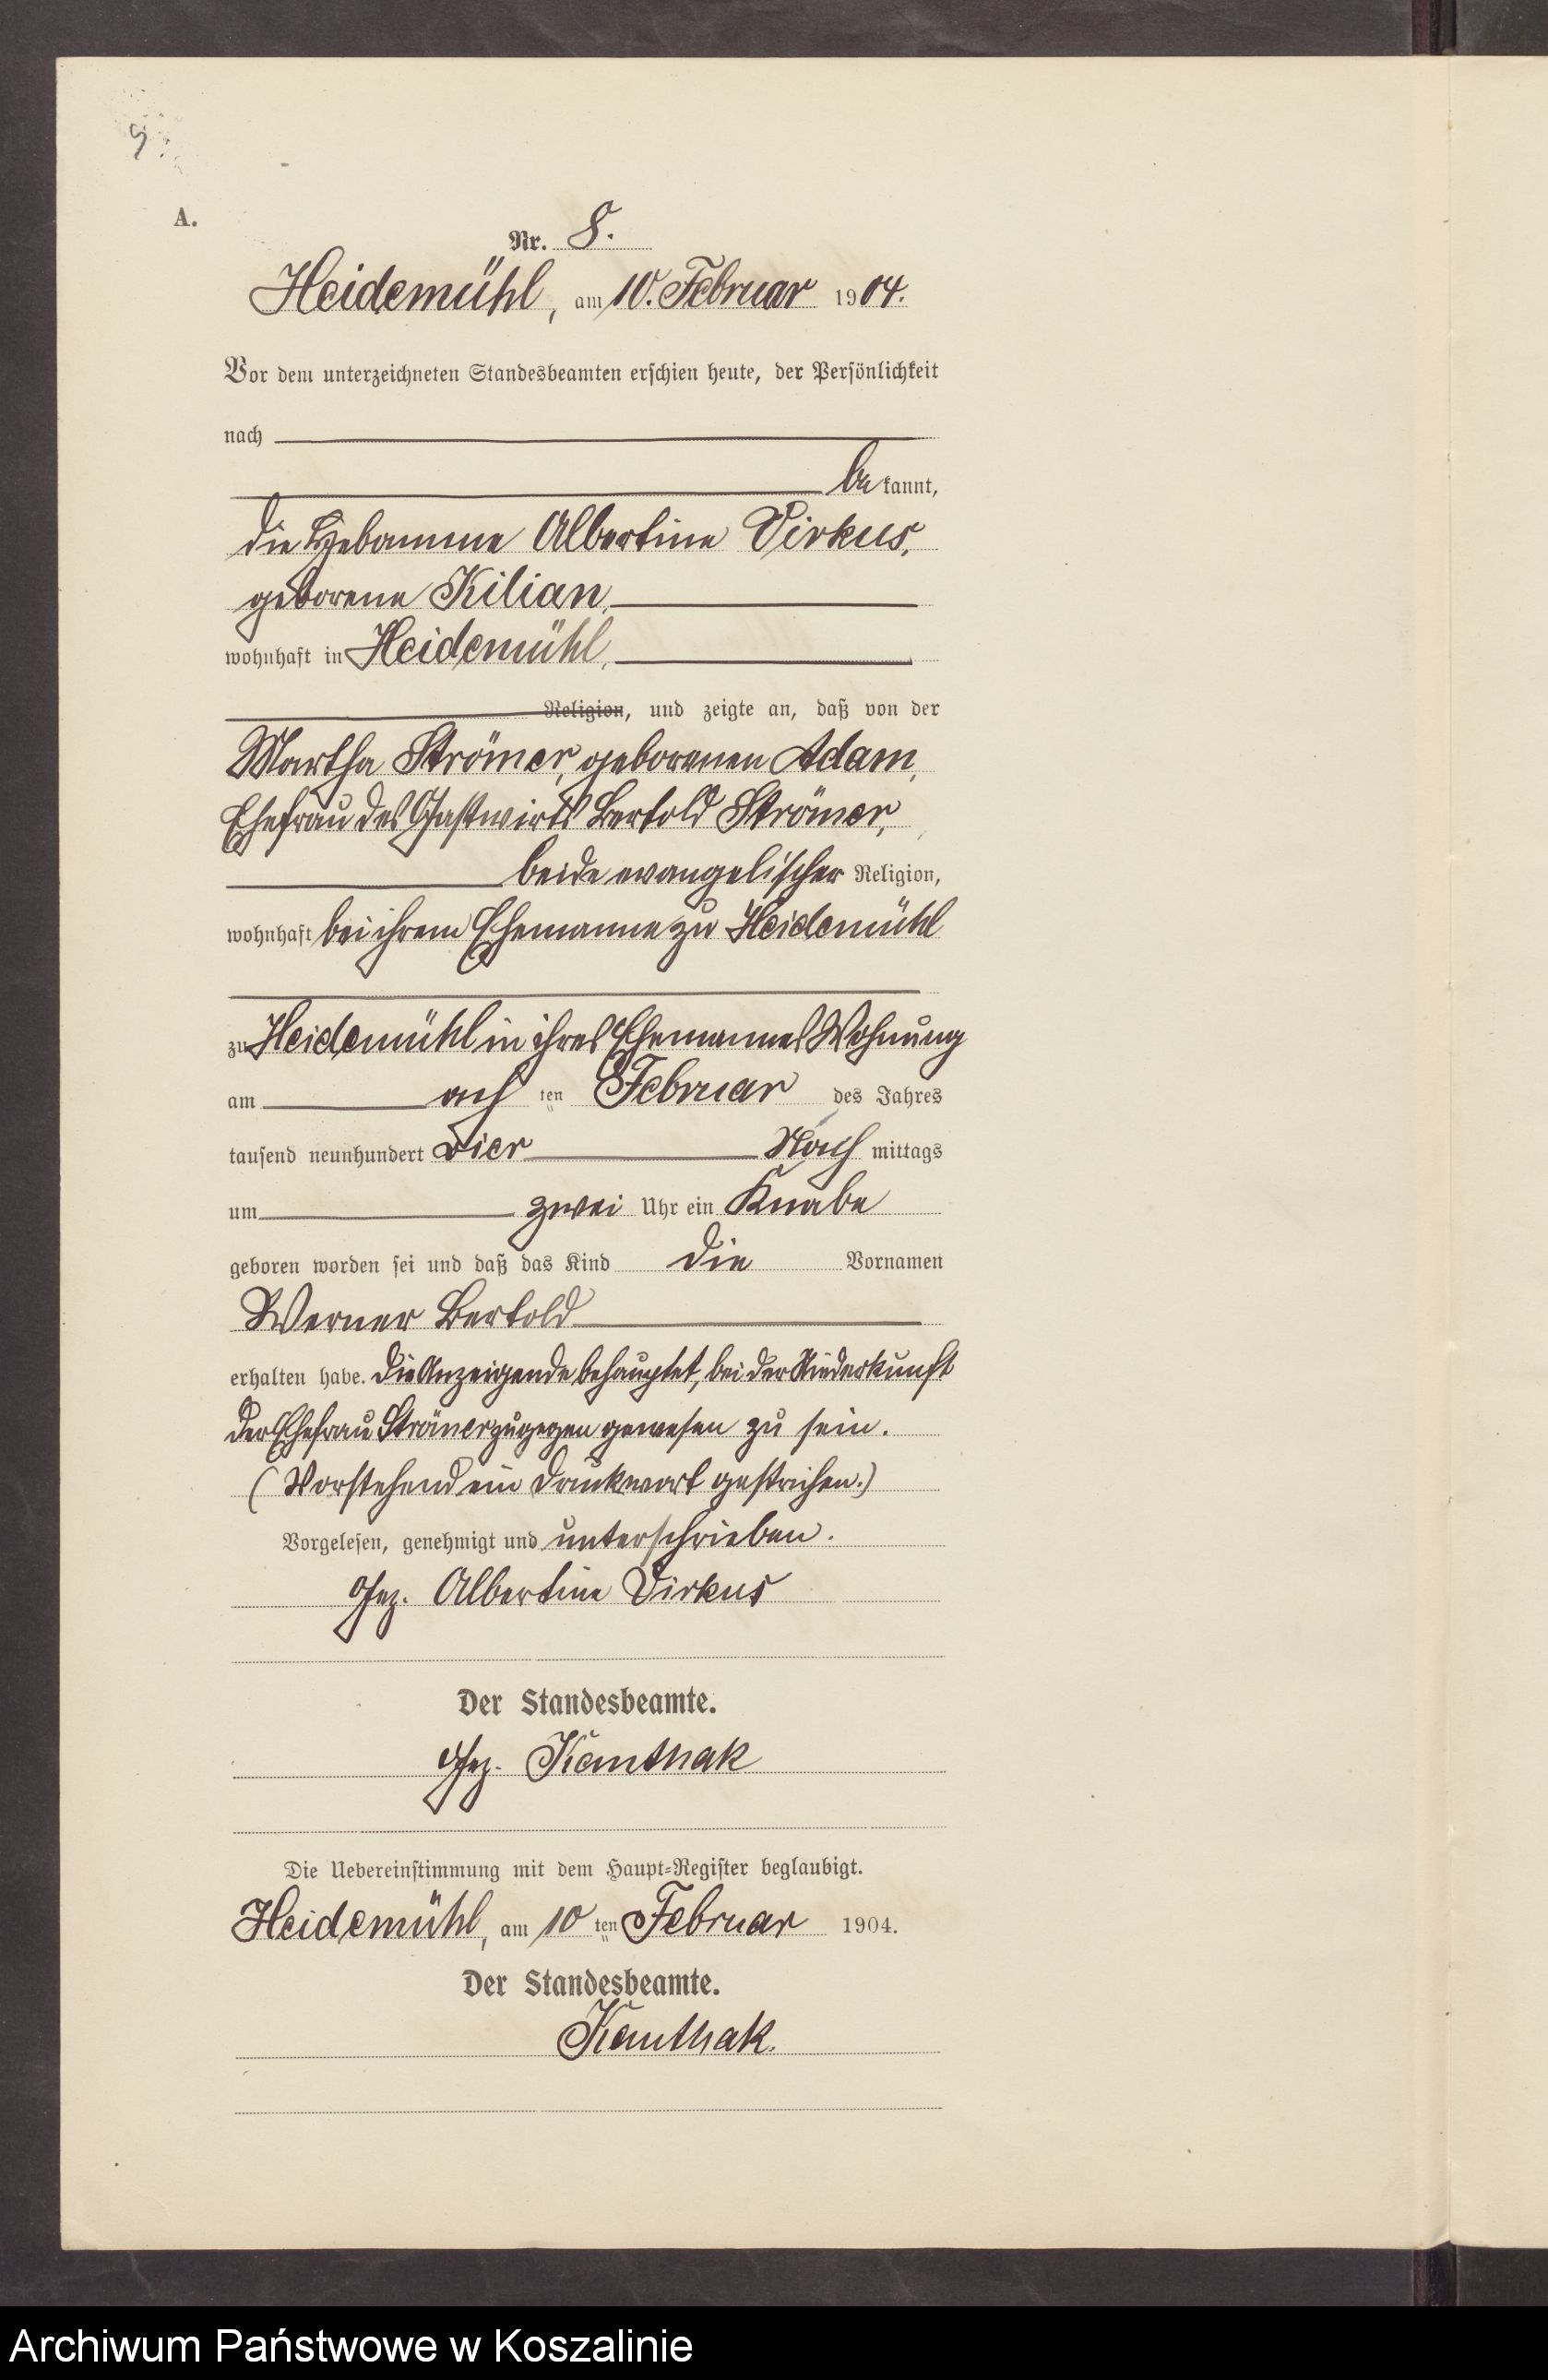 9
A.
Nr. 8.
Heidemühl, am 10. Februar 1904.
Vor dem unterzeichneten Standesbeamten erschien heute, der Persönlichkeit
nach
bekannt,
die Hebamme Albertine Virkus,
geborene Kilian,
wohnhaft in Heidemühl,
Religion, und zeigte an, daß von der
Martha Strömer, geborenen Adam,
Ehefrau des Gastwirts Bertold Strömer,
beide evangelischer Religion,
wohnhaft bei ihrem Ehemanne zu Heidemühl
zu Heidemühl in ihres Ehemannes Wohnung
am acht ten Februar des Jahres
tausend neunhundert vier Nach mittags
um zwei Uhr ein Knabe
geboren worden sei und daß das Kind die Vornamen
Werner Bertold
erhalten habe. Die Anzeigende behauptet, bei der Niederkunft
der Ehefrau Strömer zugegen gewesen zu sein.
(Vorstehend ein Druckwort gestrichen.)
Vorgelesen, genehmigt und unterschrieben.
Gez. Albertine Virkus
Der Standesbeamte.
Gez. Kanthak
Die Uebereinstimmung mit dem Haupt-Register beglaubigt.
Heidemühl, am 10 ten Februar 1904.
Der Standesbeamte.
Kanthak.
Archiwum Państwowe w Koszalinie